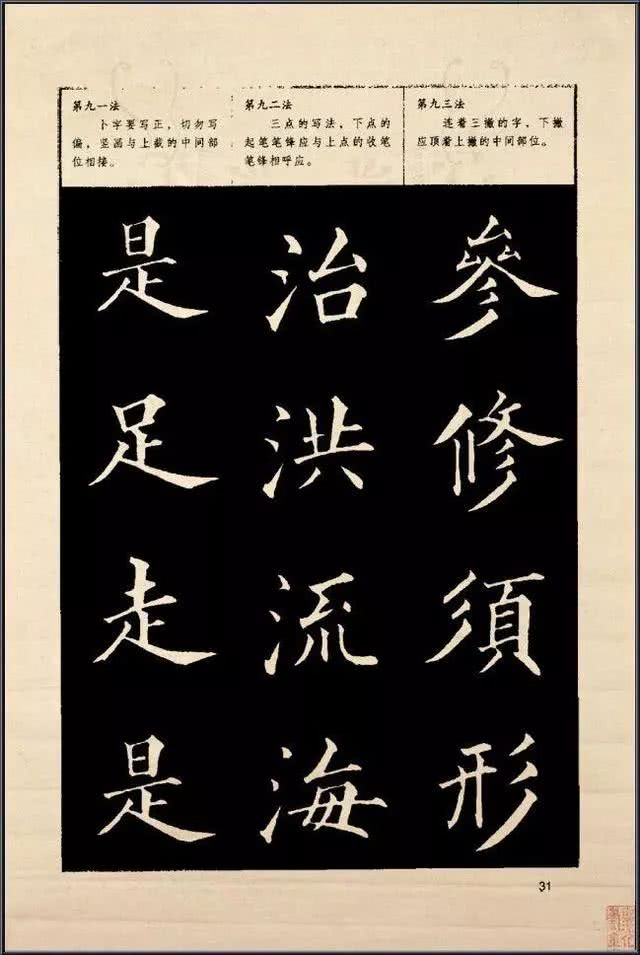 第九一法
卜字要写正，切勿写
偏，竖画与上截的中间部
位相接。
第九二法
三点的写法，下点的
起笔笔锋应与上点的收笔
笔锋相呼应。
第九三法
连着三撇的字，下撇
应顶着上撇的中间部位。
是足走是
治洪流海
參修須形
31